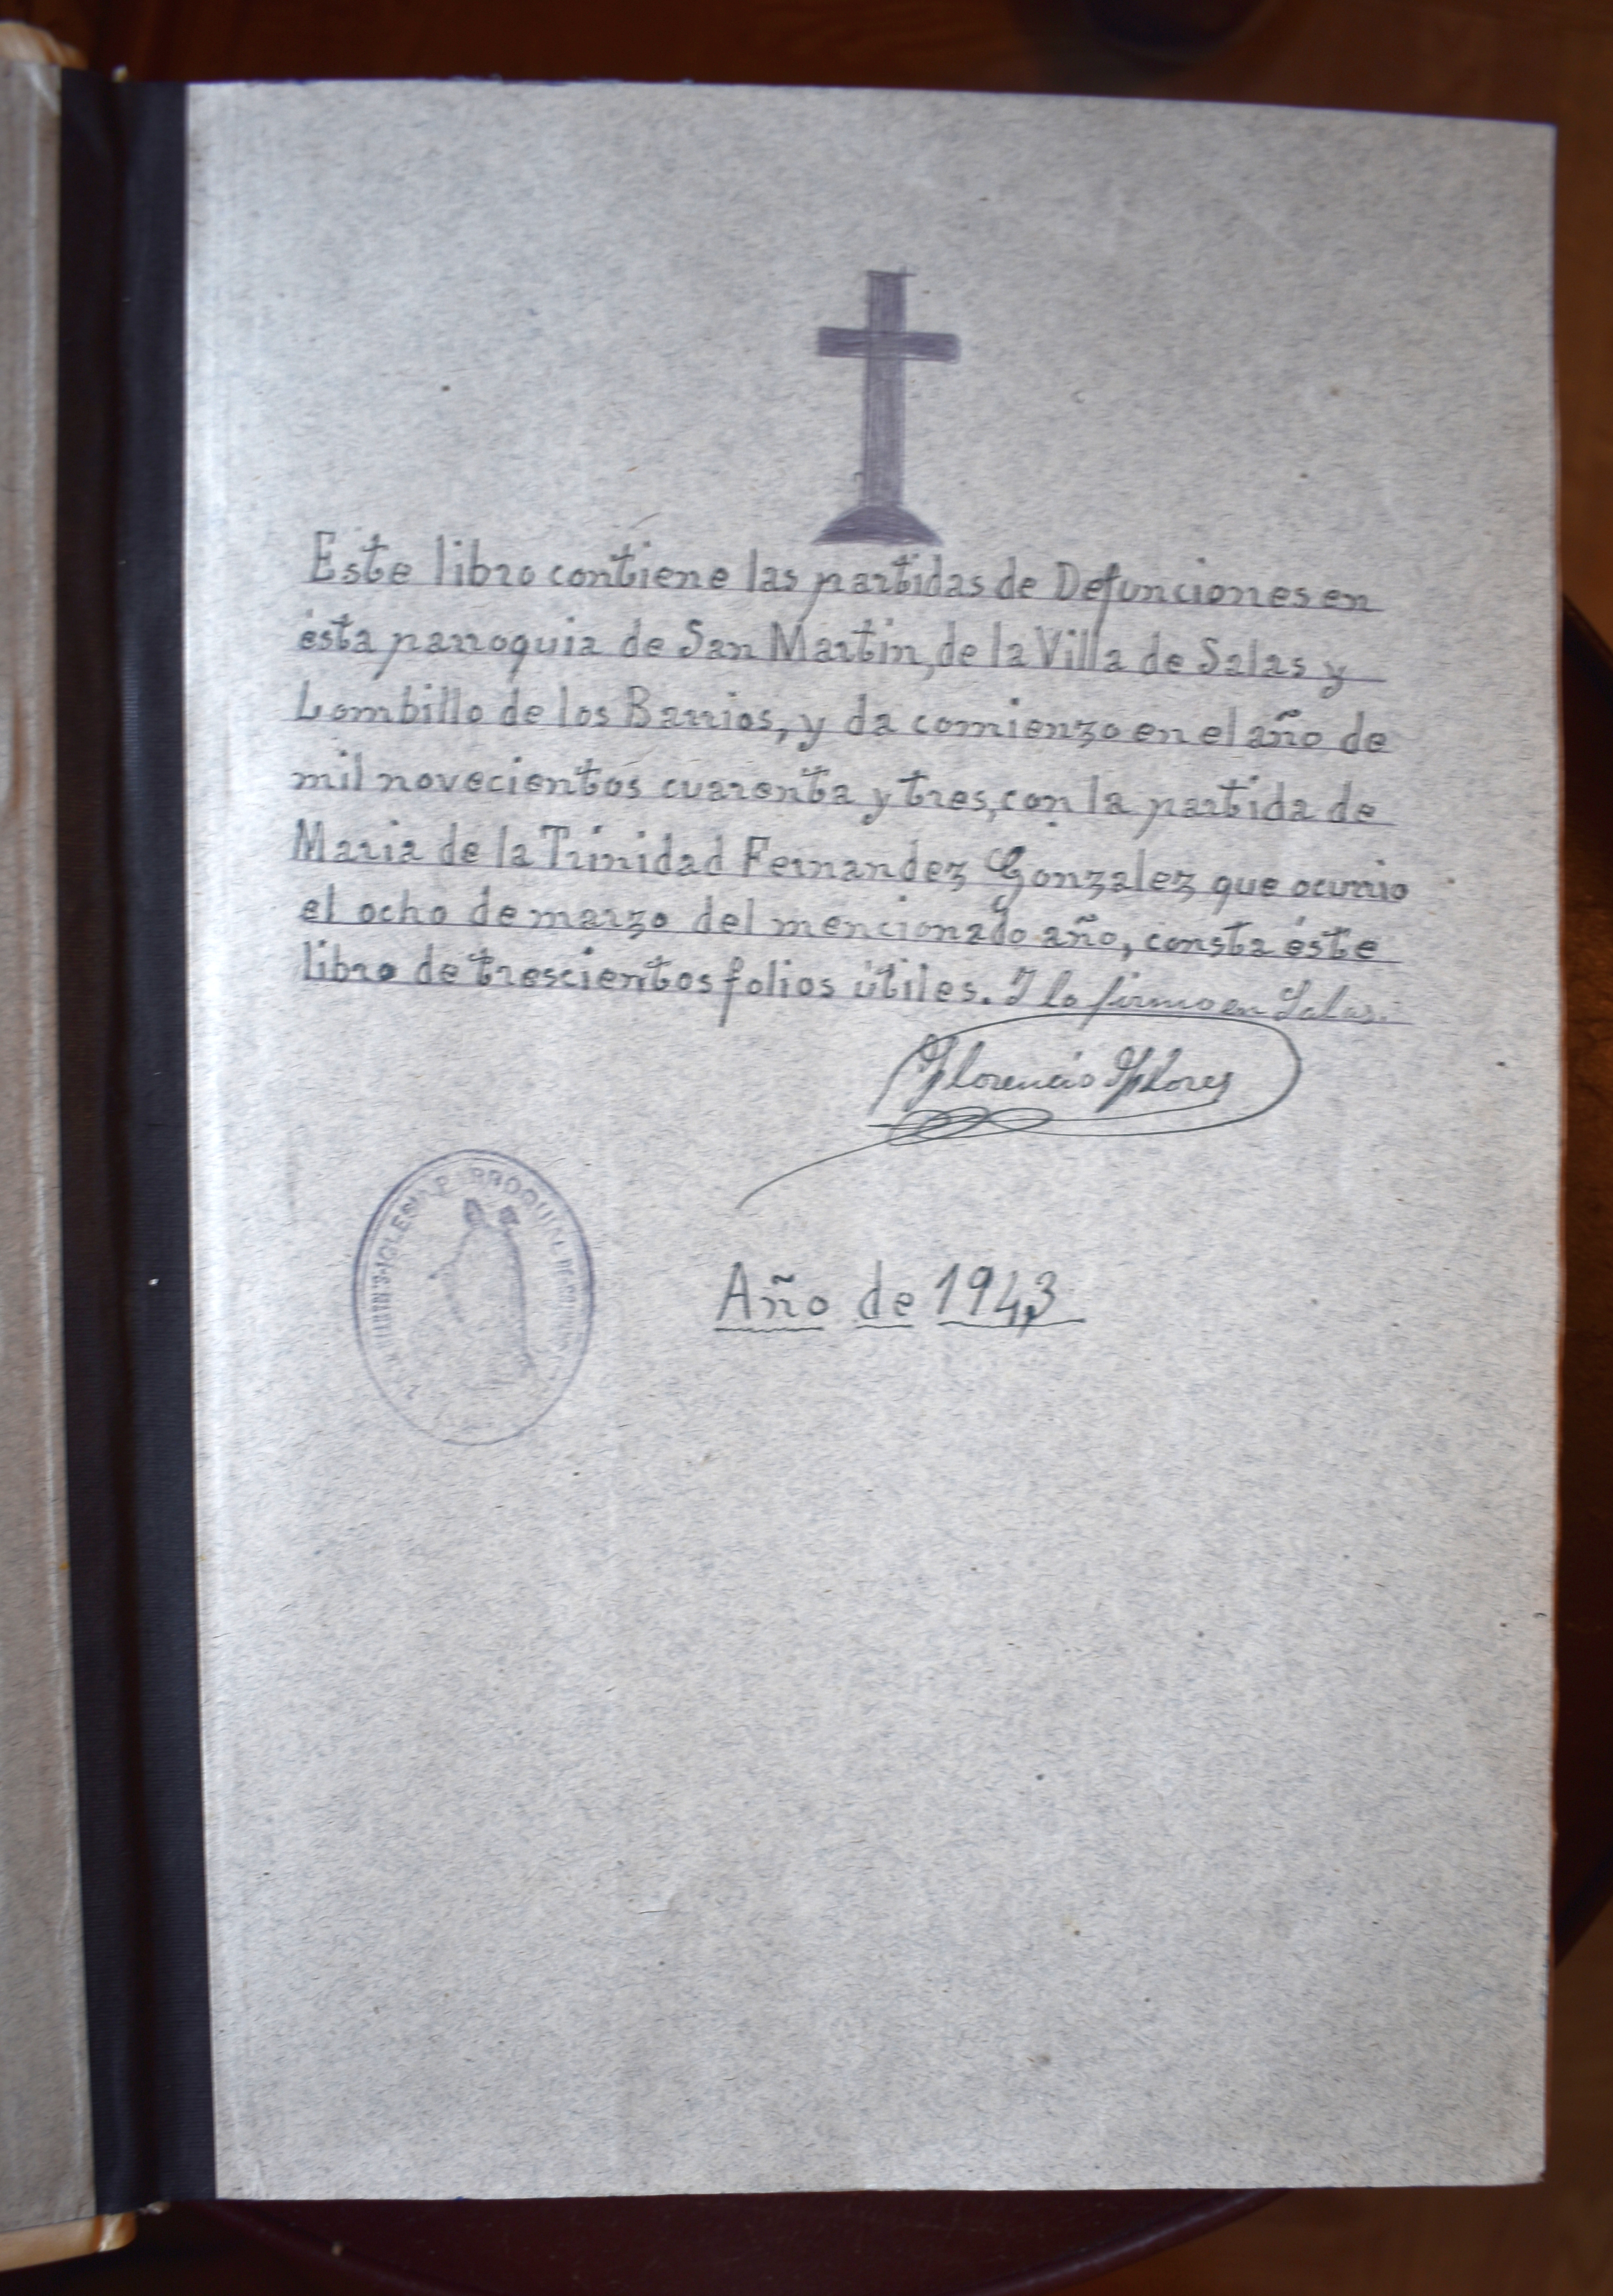 Este libro contiene las partidas de Defunciones en
ésta parroquia de San Martin, de la Villa de Salas y
Lombillo de los Barrios, y da comienzo en el año de
mil novecientos cuarenta y tres, con la partida de
Maria de la Trinidad Fernandez Gonzalez que ocurrio
el ocho de marzo del mencionado año, consta éste
libro de trescientos folios útiles. Y lo firmo en Salas.
Florencio Flores
IGLESIA PARROQUIAL DE
Año de 1943